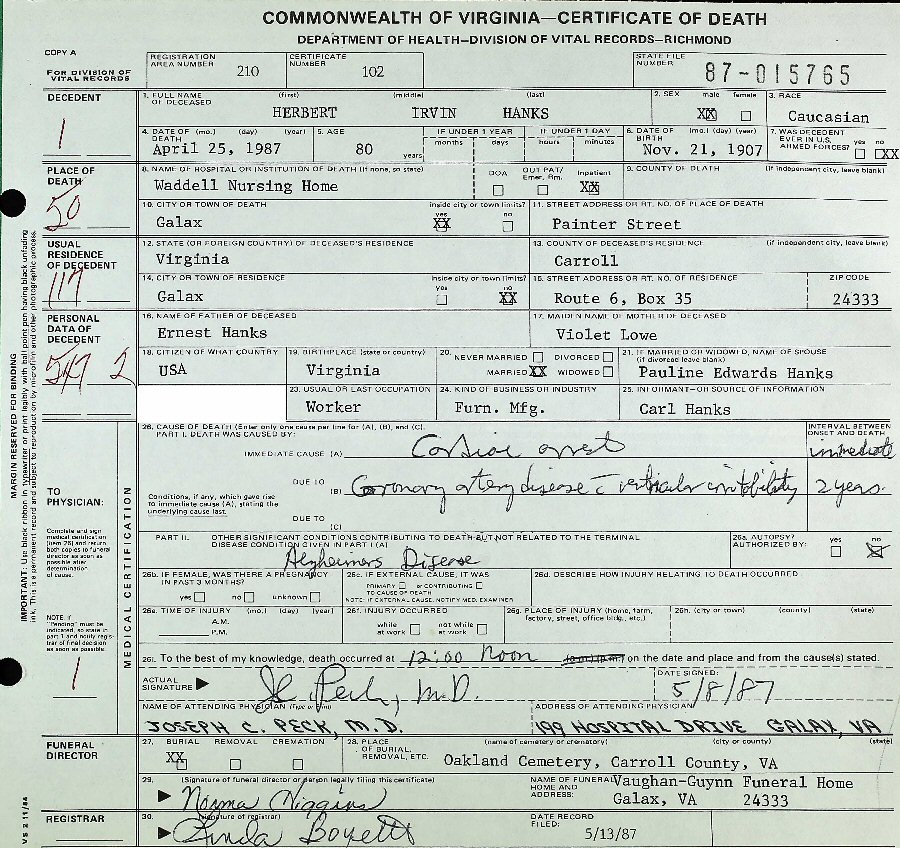 COMMONWEALTH OF VIRGINIA—CERTIFICATE OF DEATH
DEPARTMENT OF HEALTH—DIVISION OF VITAL RECORDS—RICHMOND
COPY A
FOR DIVISION OF VITAL RECORDS
REGISTRATION AREA NUMBER 210
CERTIFICATE NUMBER 102
STATE FILE NUMBER 87-015765
DECEDENT
1
1. FULL NAME OF DECEASED (first) (middle) (last)
HERBERT IRVIN HANKS
2. SEX male female
XX
3. RACE
Caucasian
4. DATE OF DEATH (mo.) (day) (year)
April 25, 1987
5. AGE
80 years
IF UNDER 1 YEAR
months days
IF UNDER 1 DAY
hours minutes
6. DATE OF BIRTH (mo.) (day) (year)
Nov. 21, 1907
7. WAS DECEDENT EVER IN U.S. ARMED FORCES? yes no
XX
PLACE OF DEATH
50
8. NAME OF HOSPITAL OR INSTITUTION OF DEATH (if none, so state)
Waddell Nursing Home
DOA OUT PAT/ Emer. Rm. Inpatient
XX
9. COUNTY OF DEATH (if independent city, leave blank)
10. CITY OR TOWN OF DEATH inside city or town limits? yes no
Galax XX
11. STREET ADDRESS OR RT. NO. OF PLACE OF DEATH
Painter Street
USUAL RESIDENCE OF DECEDENT
117
12. STATE (OR FOREIGN COUNTRY) OF DECEASED'S RESIDENCE
Virginia
13. COUNTY OF DECEASED'S RESIDENCE (if independent city, leave blank)
Carroll
14. CITY OR TOWN OF RESIDENCE inside city or town limits? yes no
Galax XX
15. STREET ADDRESS OR RT. NO. OF RESIDENCE
Route 6, Box 35
ZIP CODE
24333
PERSONAL DATA OF DECEDENT
2
16. NAME OF FATHER OF DECEASED
Ernest Hanks
17. MAIDEN NAME OF MOTHER OF DECEASED
Violet Lowe
18. CITIZEN OF WHAT COUNTRY
USA
19. BIRTHPLACE (state or country)
Virginia
20. NEVER MARRIED DIVORCED
MARRIED XX WIDOWED
21. IF MARRIED OR WIDOWED, NAME OF SPOUSE
(if divorced leave blank)
Pauline Edwards Hanks
23. USUAL OR LAST OCCUPATION
Worker
24. KIND OF BUSINESS OR INDUSTRY
Furn. Mfg.
25. INFORMANT—OR SOURCE OF INFORMATION
Carl Hanks
MARGIN RESERVED FOR BINDING
IMPORTANT: Use black ribbon in typewriter or print legibly with ball point pen having black unfading
ink. This is a permanent record and subject to reproduction by microfilm and other photographic process.
TO PHYSICIAN:
Complete and sign
medical certification
(item 26) and return
both copies to funeral
director as soon as
possible after
determination
of cause.
NOTE: If
"Pending" must be
indicated, so state in
part 1 and notify regis-
trar of final decision
as soon as possible.
1
MEDICAL CERTIFICATION
26. CAUSE OF DEATH (Enter only one cause per line for (A), (B), and (C).
PART I. DEATH WAS CAUSED BY:
INTERVAL BETWEEN ONSET AND DEATH
IMMEDIATE CAUSE (A) Cardiac arrest immediate
Conditions, if any, which gave rise
to immediate cause (A), stating the
underlying cause last.
DUE TO (B) Coronary artery disease c ventricular irritability 2 years
DUE TO (C)
PART II. OTHER SIGNIFICANT CONDITIONS CONTRIBUTING TO DEATH BUT NOT RELATED TO THE TERMINAL
DISEASE CONDITION GIVEN IN PART I (A)
Alzheimers Disease
26a. AUTOPSY? AUTHORIZED BY: yes no
26b. IF FEMALE, WAS THERE A PREGNANCY IN PAST 3 MONTHS?
yes no unknown
26c. IF EXTERNAL CAUSE, IT WAS
PRIMARY or CONTRIBUTING
TO CAUSE OF DEATH
NOTE: IF EXTERNAL CAUSE, NOTIFY MED. EXAMINER
26d. DESCRIBE HOW INJURY RELATING TO DEATH OCCURRED
26e. TIME OF INJURY (mo.) (day) (year)
A.M.
P.M.
26f. INJURY OCCURRED
while at work not while at work
26g. PLACE OF INJURY (home, farm, factory, street, office bldg., etc.)
26h. (city or town) (county) (state)
26i. To the best of my knowledge, death occurred at 12:00 Noon (a.m.) (p.m.) on the date and place and from the cause(s) stated.
ACTUAL SIGNATURE JC Peck, M.D.
DATE SIGNED: 5/8/87
NAME OF ATTENDING PHYSICIAN (Type or Print)
JOSEPH C. PECK, M.D.
ADDRESS OF ATTENDING PHYSICIAN
199 HOSPITAL DRIVE GALAX, VA
FUNERAL DIRECTOR
27. BURIAL REMOVAL CREMATION
XX
28. PLACE OF BURIAL, REMOVAL, ETC. (name of cemetery or crematory) (city or county) (state)
Oakland Cemetery, Carroll County, VA
29. (Signature of funeral director or person legally filing this certificate)
Norma Higgins
NAME OF FUNERAL HOME AND ADDRESS:
Vaughan-Guynn Funeral Home
Galax, VA 24333
REGISTRAR
30. (signature of registrar)
Linda Boyett
DATE RECORD FILED: 5/13/87
VS 2 11/84